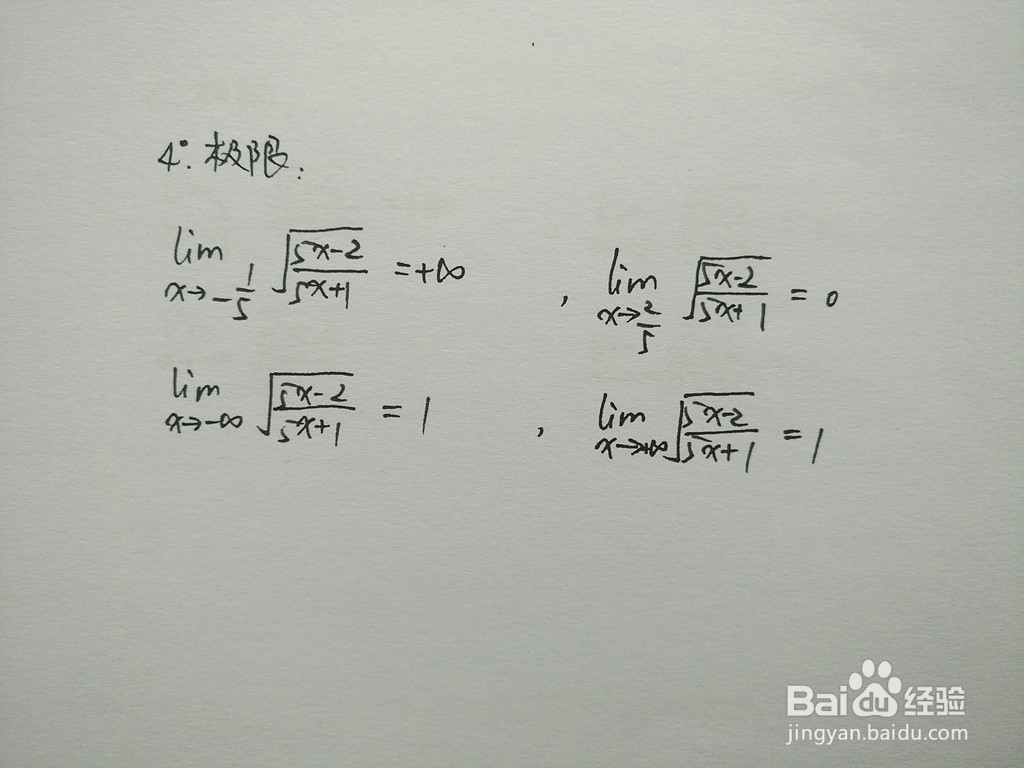 4°. 极限:
lim x→-1/5 √((5x-2)/(5x+1)) = +∞ , lim x→2/5 √((5x-2)/(5x+1)) = 0
lim x→-∞ √((5x-2)/(5x+1)) = 1 , lim x→+∞ √((5x-2)/(5x+1)) = 1
Baidu经验
jingyan.baidu.com